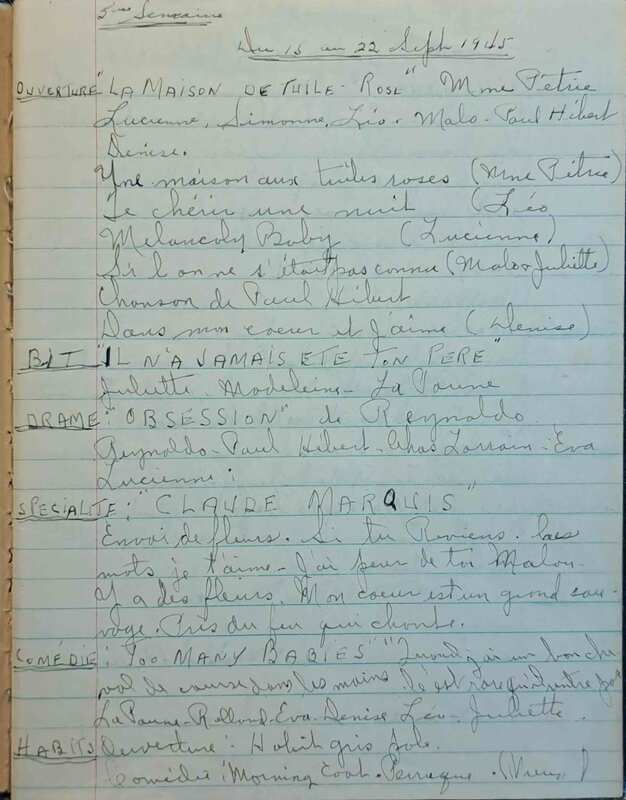 5ème Semaine
Du 15 au 22 Sept 1945
OUVERTURE "LA MAISON DE THILE-ROSE" Mme Pétrie
Lucienne, Simonne, Léo - Malo - Paul Hibert
Denise.
Une maison aux tuiles roses (Mme Pétrie)
Te chérir une nuit (Léo
Melancoly Baby (Lucienne)
Si l'on ne s'était pas connu (Malo & Juliette)
Chanson de Paul Hibert
Dans mon coeur et J'aime (Denise)
BIT "IL N'A JAMAIS ETE TON PERE"
Juliette - Madeleine - La Poune
DRAME: "OBSESSION" de Reynaldo
Reynaldo - Paul Hibert - Chas Lorrain - Eva
Lucienne:
SPECIALITE: "CLAUDE MARQUIS"
Envoi de fleurs. Si tu Reviens. Les
mots je t'aime - J'ai peur de toi Malou -
Y a des fleurs. Mon coeur est un grand sau-
vage. Près du feu qui chante.
COMÉDIE: "TOO MANY BABIES" "Quand j'ai un bon che-
val de course dans les mains. C'est rare qu'il rentre pas
La Poune - Rolland - Eva - Denise Léo - Juliette.
HABITS Ouverture: Habit gris pale.
Comédie: Morning Coat - Perruque - (Vieux)